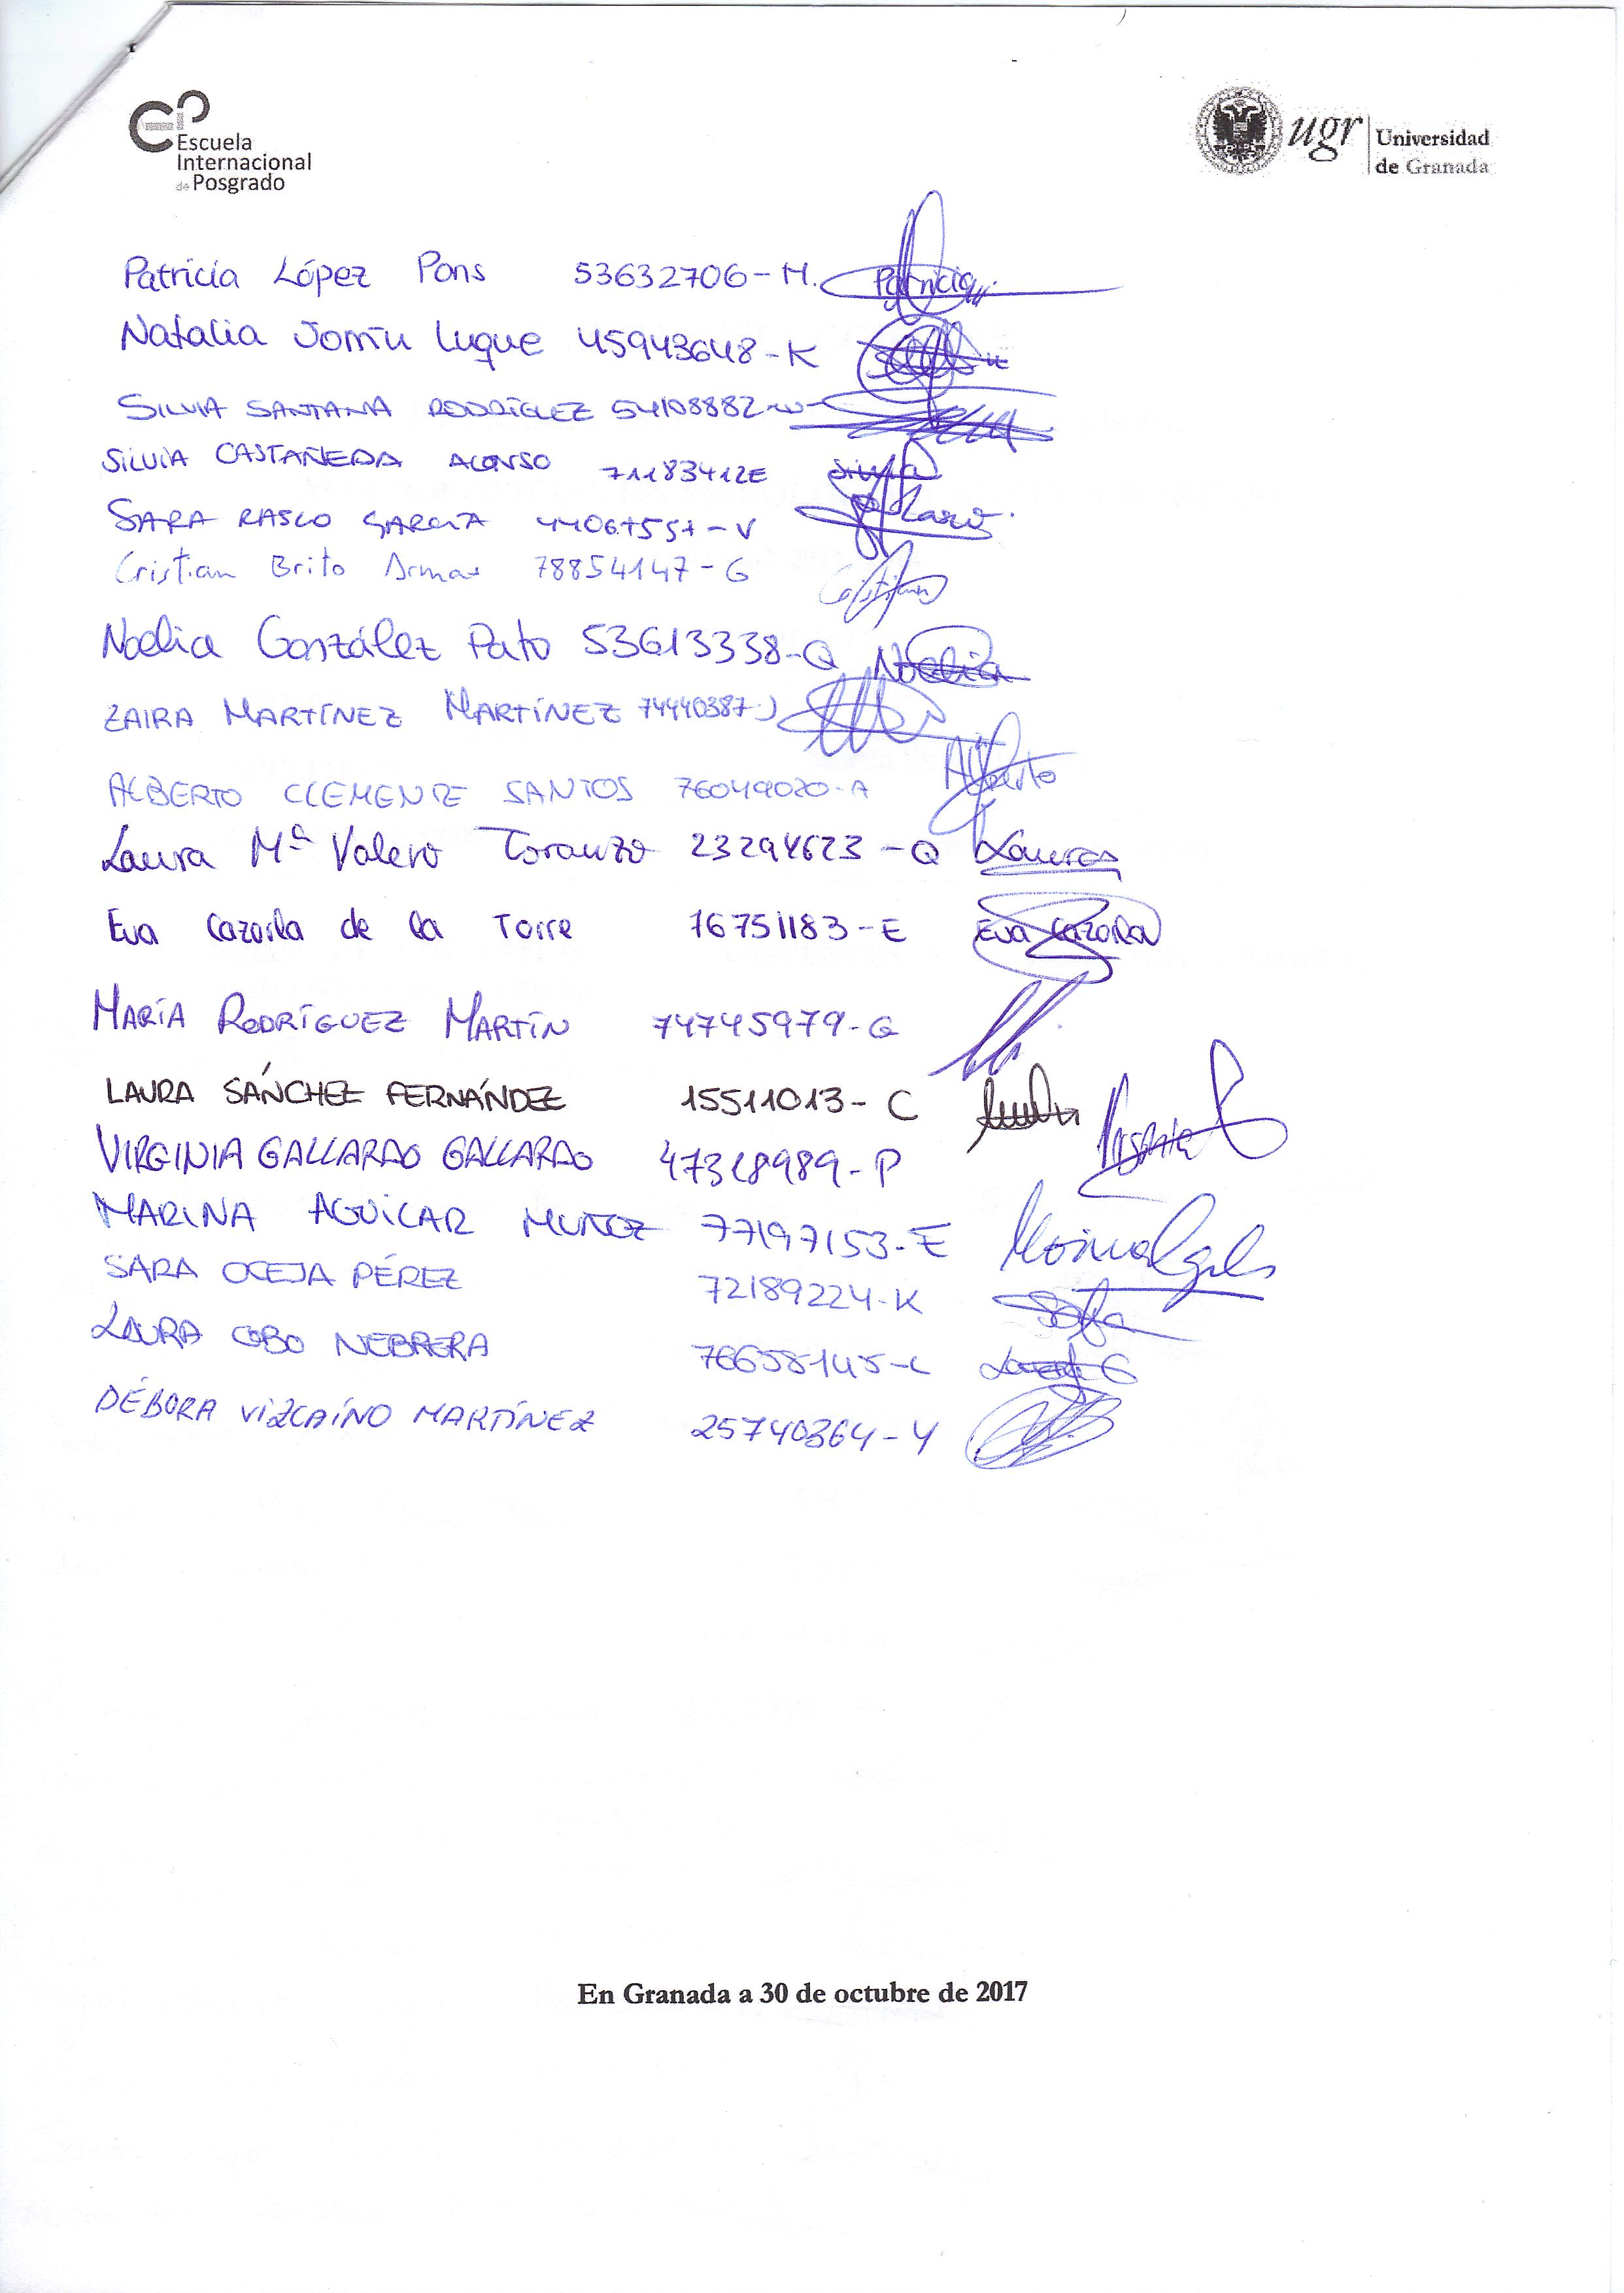 Escuela
Internacional
de Posgrado
ugr Universidad
de Granada
Patricia López Pons 53632706-M. Patricia
Natalia Luque 45943648-K
SILVIA SANTANA RODRÍGUEZ 54108882-W
SILVIA CASTAÑEDA ALONSO 71183412E Silvia
SARA RASCO GARCÍA 44067557-V
Cristian Brito Armas 78854147-G Cristian
Noelia González Pato 53613338-Q Noelia
ZAIRA MARTÍNEZ MARTÍNEZ 74440387J
ALBERTO CLEMENTE SANTOS 76049020-A Alberto
Laura Mª Valero Toranzo 23294623-Q Laura
Eva Cazorla de la Torre 76751183-E Eva Cazorla
MARÍA RODRÍGUEZ MARTÍN 74745979-G
LAURA SÁNCHEZ FERNÁNDEZ 15511013-C
VIRGINIA GALLARDO GALLARDO 47318989-P Virginia
MARINA AGUILAR MUÑOZ 77197153-E
SARA OCEJA PÉREZ 72189224-K
LAURA COBO NEBRERA 76658145-L
DÉBORA VIZCAÍNO MARTÍNEZ 25740364-Y
En Granada a 30 de octubre de 2017